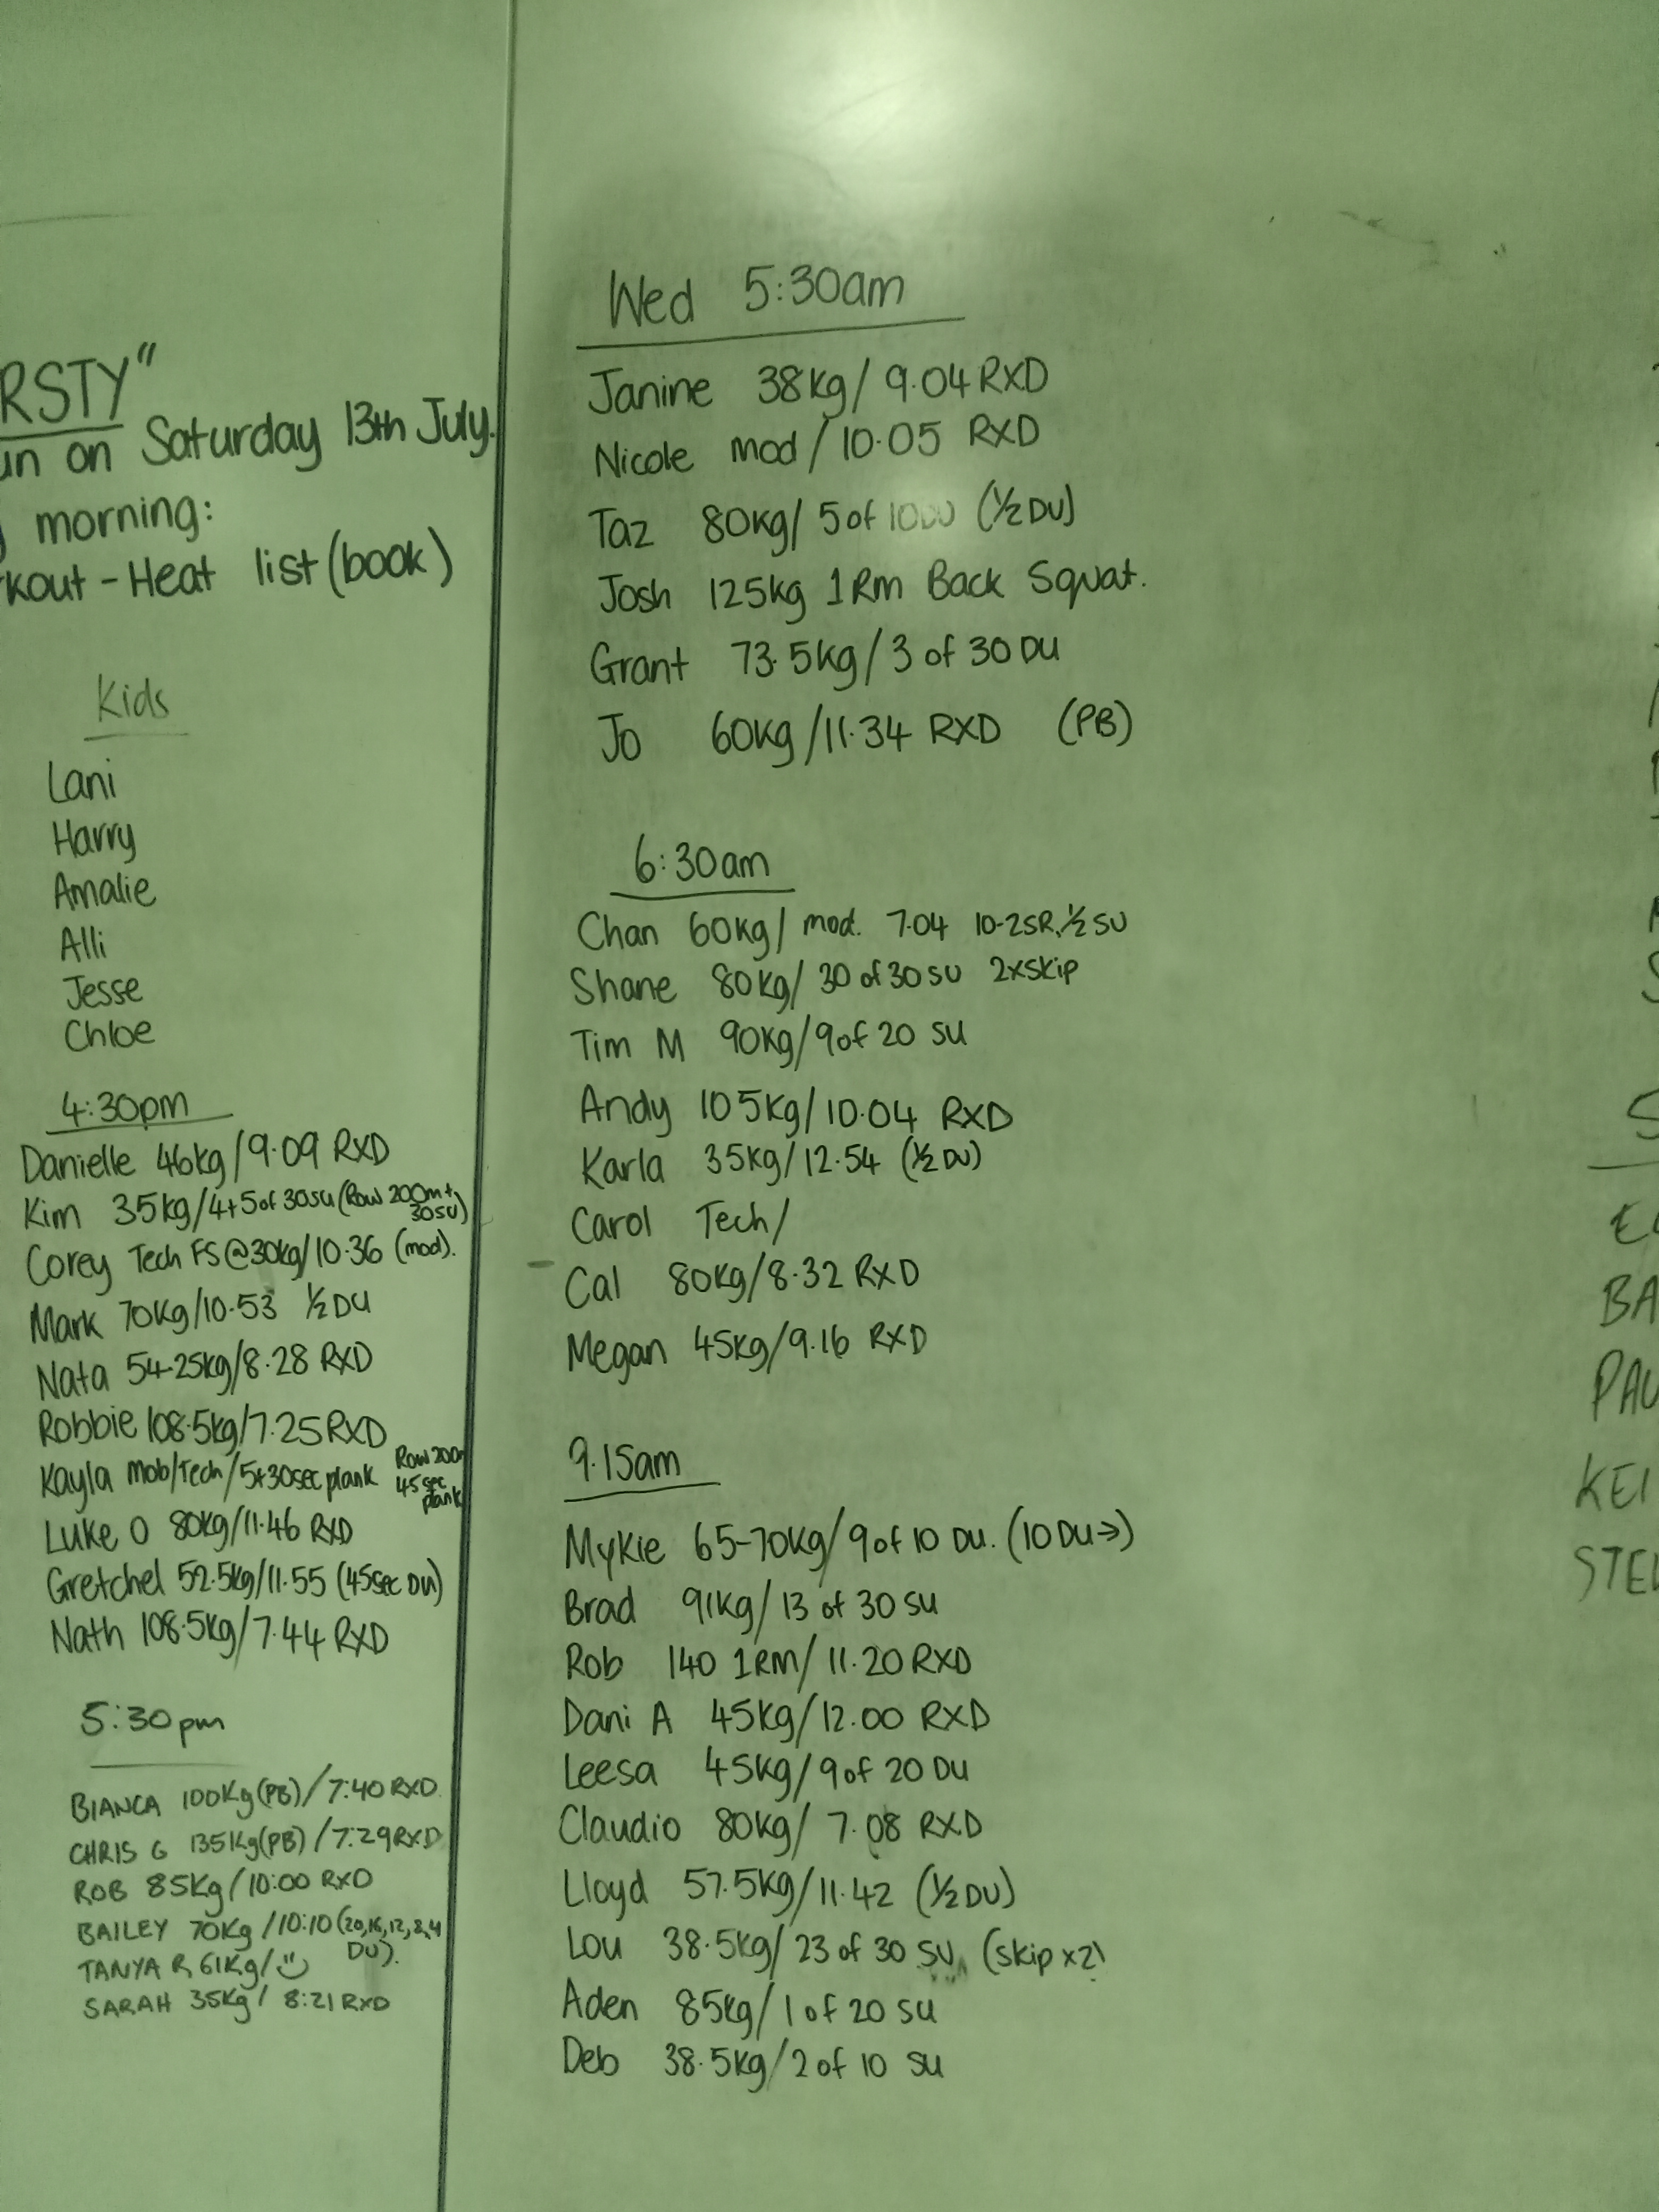 RSTY"
on Saturday 13th July.
morning:
kout - Heat list (book)
Kids
Lani
Harry
Amalie
Alli
Jesse
Chloe
4:30pm
Danielle 46kg/9.09 RXD
Kim 35kg/4+5 of 30SU (Row 200m+ 30SU)
Corey Tech FS@30kg/10.36 (mod).
Mark 70kg/10.53 ½ DU
Nata 54.25kg/8.28 RXD
Robbie 108.5kg/7.25 RXD
Kayla Mob/Tech/5+30sec plank Row 200m 45sec plank
Luke O 80kg/11.46 RXD
Gretchel 52.5kg/11.55 (45sec DU)
Nath 108.5kg/7.44 RXD
5:30pm
BIANCA 100Kg(PB)/7:40 RXD
CHRIS G 135Kg(PB)/7:29RXD
ROB 85Kg/10:00 RXD
BAILEY 70Kg/10:10 (20,16,12,8,4 DU).
TANYA R 61Kg/
SARAH 35Kg/ 8:21 RXD
Wed 5:30am
Janine 38kg/ 9.04 RXD
Nicole mod/10.05 RXD
Taz 80kg/ 5 of 10DU (½ DU)
Josh 125kg 1RM Back Squat.
Grant 73.5kg/3 of 30 DU
Jo 60kg/11.34 RXD (PB)
6:30am
Chan 60kg/ mod. 7.04 10-2SR. ½ SU
Shane 80kg/ 30 of 30 SU 2xskip
Tim M 90kg/9 of 20 SU
Andy 105kg/10.04 RXD
Karla 35kg/12.54 (½ DU)
Carol Tech/
Cal 80kg/8.32 RXD
Megan 45kg/9.16 RXD
9.15am
Mykie 65-70kg/9 of 10 DU. (10 DU→)
Brad 91kg/13 of 30 SU
Rob 140 1RM/ 11.20 RXD
Dani A 45kg/12.00 RXD
Leesa 45kg/9 of 20 DU
Claudio 80kg/ 7.08 RXD
Lloyd 57.5kg/11.42 (½ DU)
Lou 38.5kg/ 23 of 30 SU (skip x2)
Aden 85kg/1 of 20 SU
Deb 38.5kg/2 of 10 SU
BA
PAU
KEI